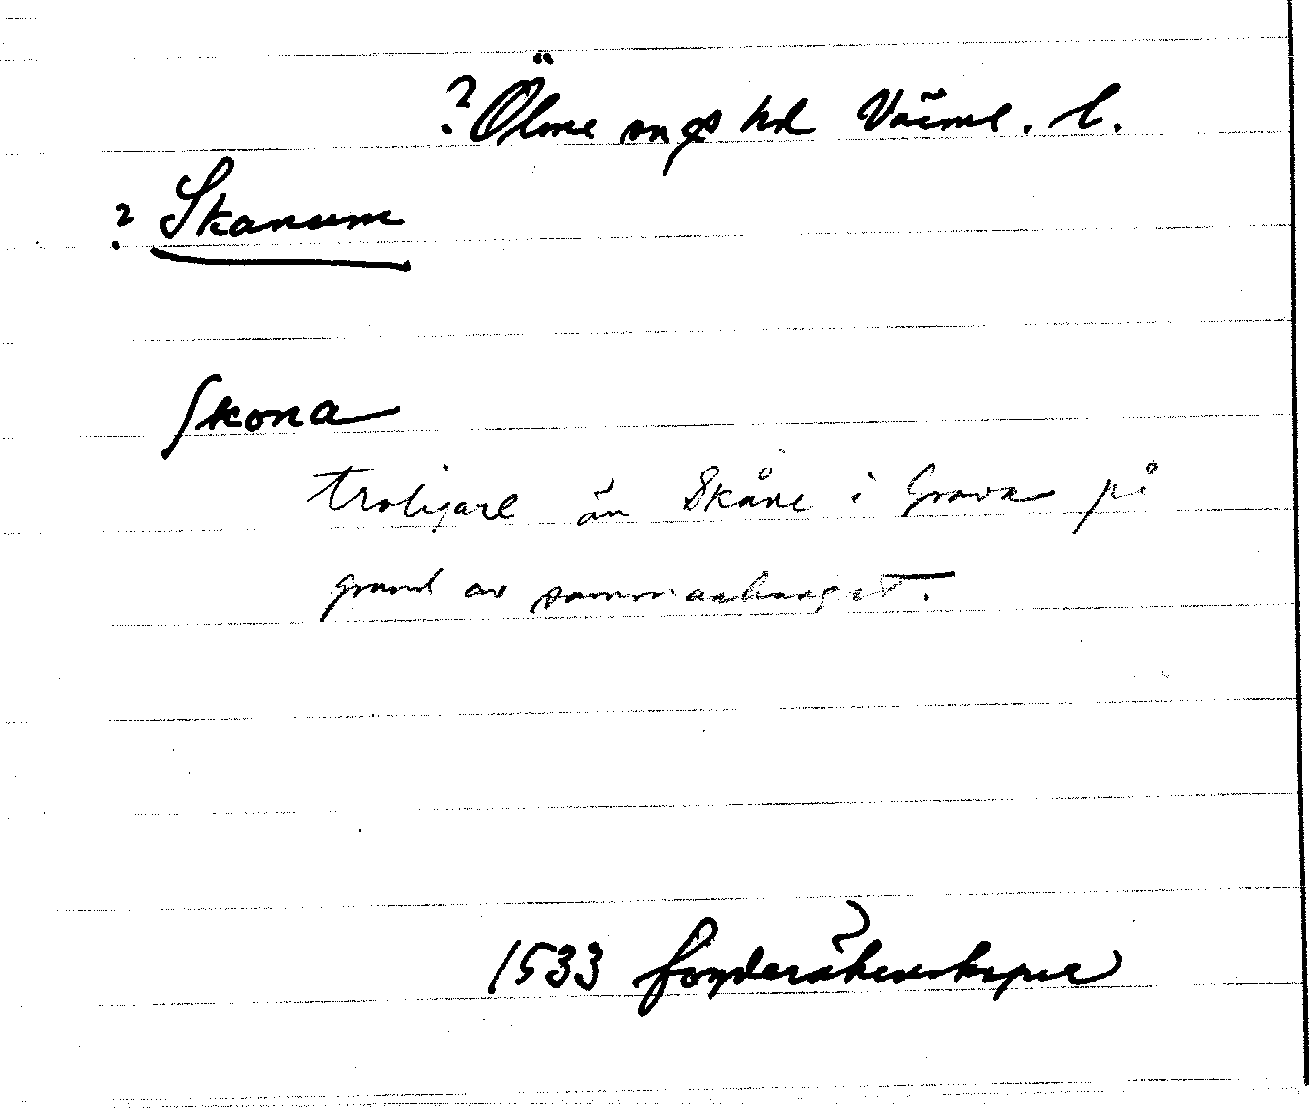 ? Ölme sn o hd Värml. l.
? Skanum
Skona
troligare än Skåne i Grava på
grund av sammanhanget.
1533 fogderäkenskaper